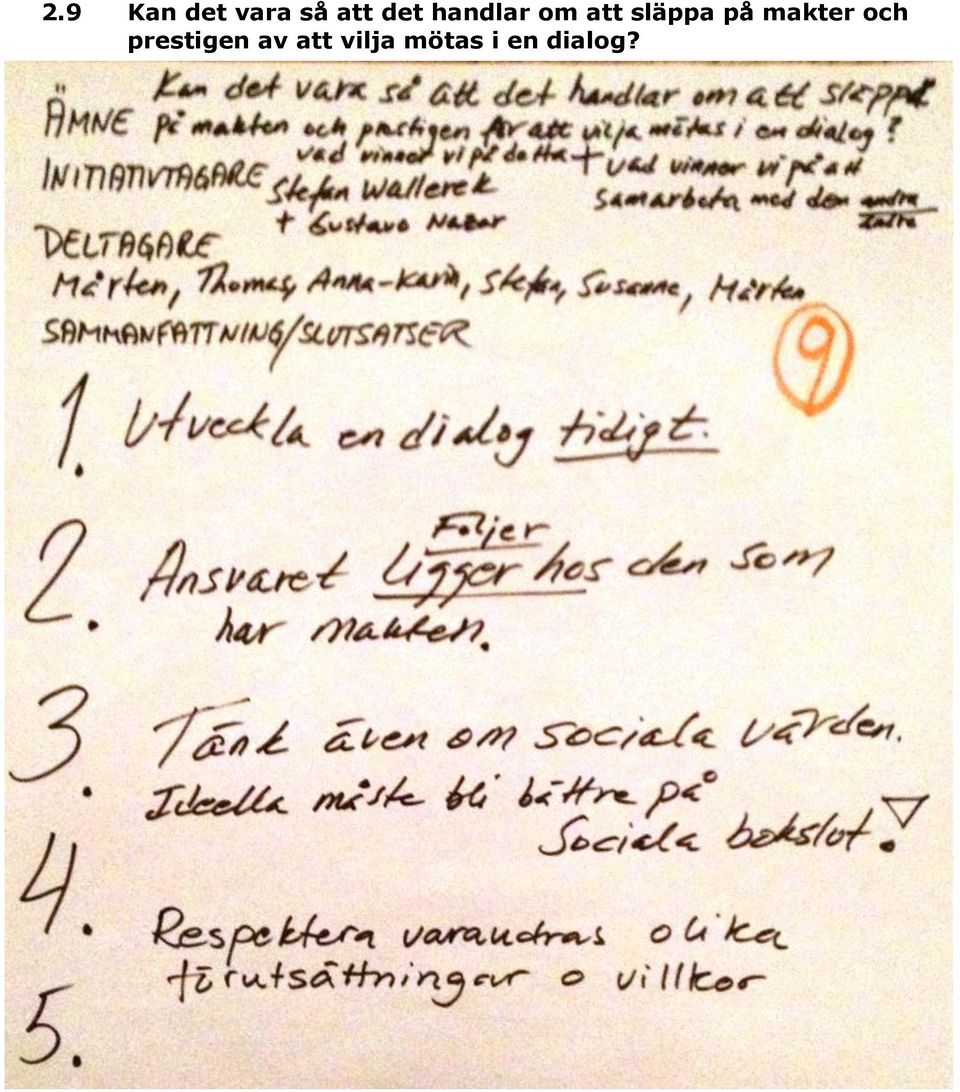 2.9 Kan det vara så att det handlar om att släppa på makter och
prestigen av att vilja mötas i en dialog?
Kan det vara så att det handlar om att släppa
ÄMNE på makten och prestigen för att vilja mötas i en dialog?
vad vinner vi på detta + vad vinner vi på att
INITIATIVTAGARE Stefan Wallerek samarbeta med den andra
+ Gustavo Nazar andre
DELTAGARE
Mårten, Thomas, Anna-Karin, Stefan, Susanne, Mårten
SAMMANFATTNING/SLUTSATSER
9
1. Utveckla en dialog tidigt.
Följer
2. Ansvaret ligger hos den som
har makten.
3. Tänk även om sociala värden.
Ideella måste bli bättre på
Sociala bokslut!
4.
Respektera varandras olika
förutsättningar o villkor
5.